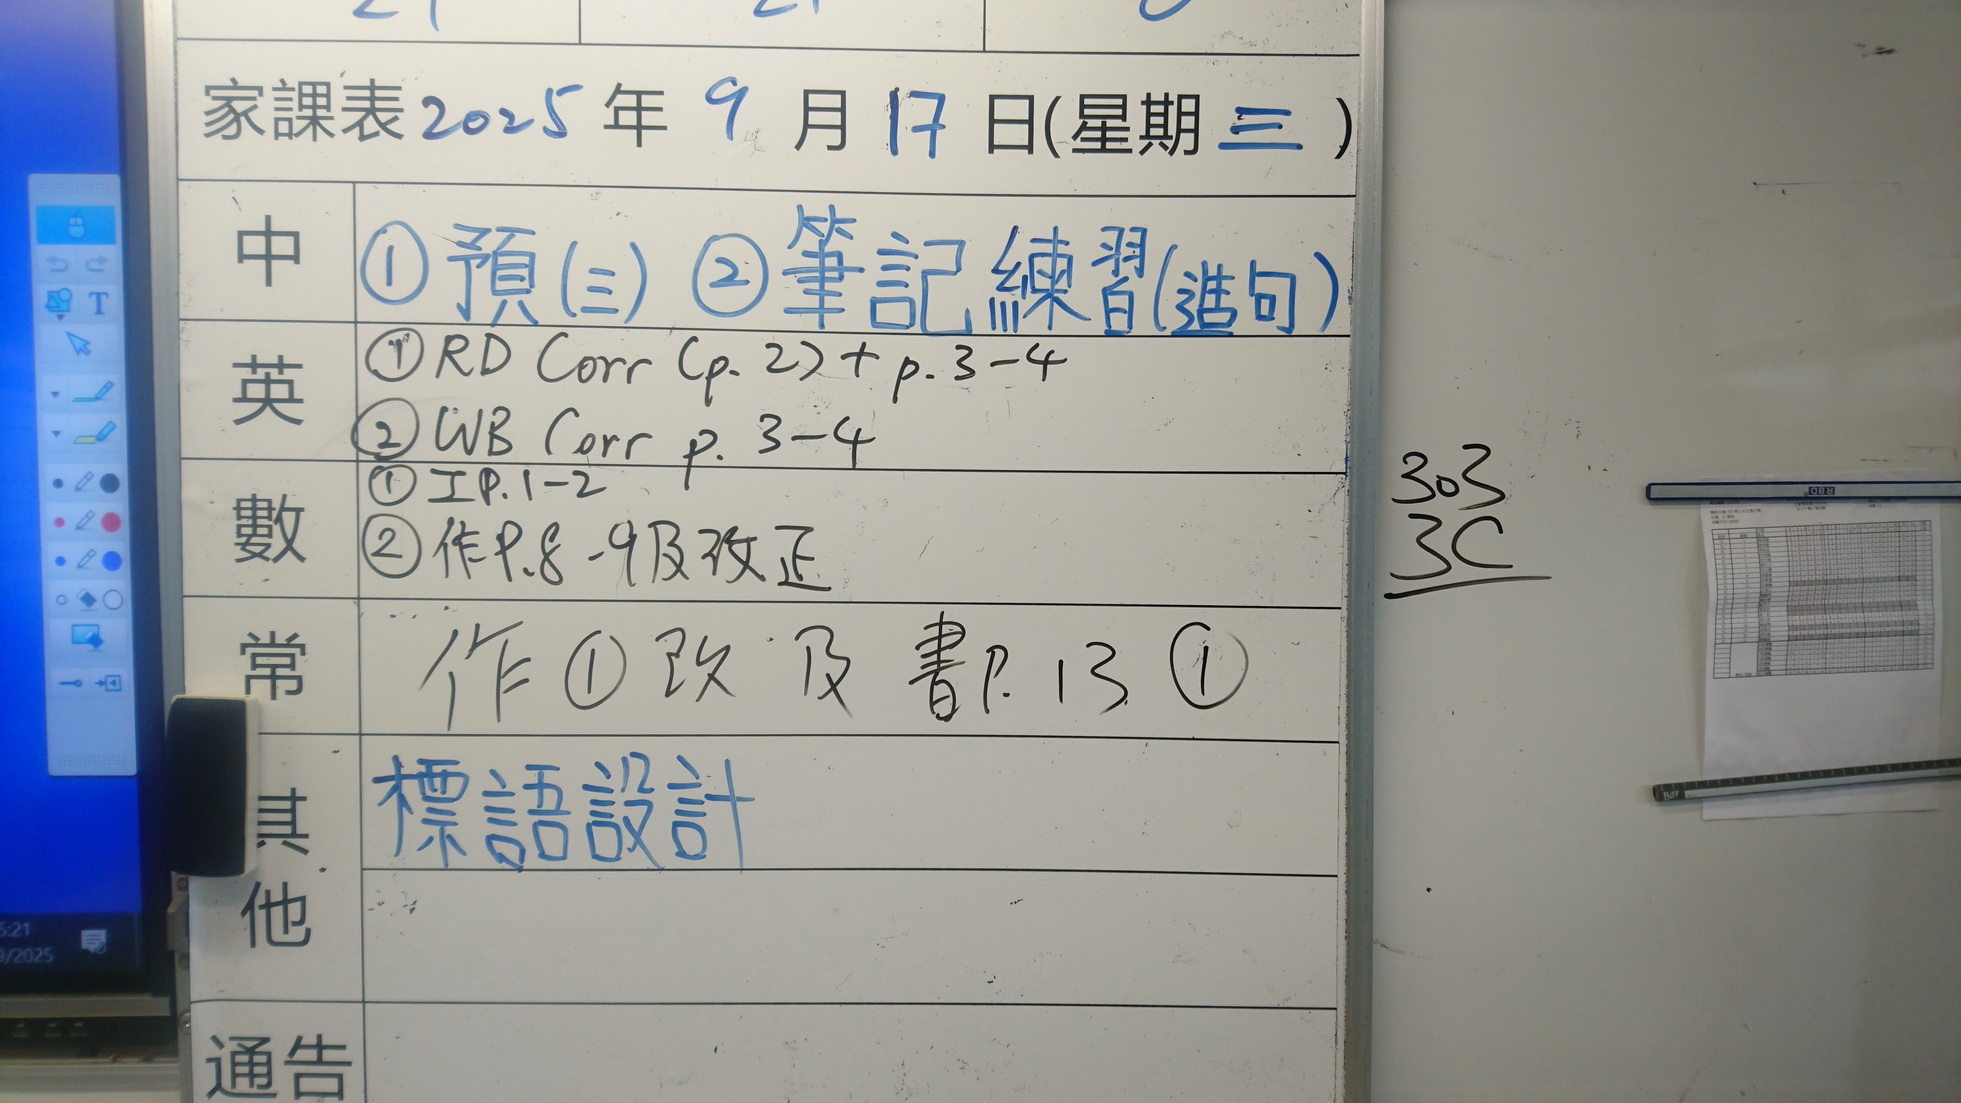 家課表 2025 年 9 月 17 日(星期 三 )
中
① 預(三) ② 筆記練習(造句)
英
① RD Corr (p. 2) + p. 3-4
② WB Corr p. 3-4
數
① 工P.1-2
② 作P.8-9及改正
常
作①改及書P.13①
其他
標語設計
通告
303
3C
T
5:21
9/2025